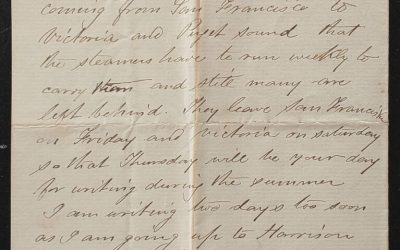 coming from San Francisco to
Victoria and Puget Sound that
the steamers have to run weekly to
carry them and still many are
left behind. They leave San Francisco
on Friday and Victoria on Saturday
so that Thursday will be your day
for writing during the summer
I am writing two days too soon
as I am going up to Harrison